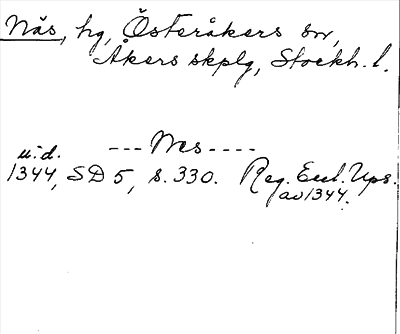 Näs, hg, Österåkers sn,
Åkers skplg, Stockh. l.
u.d. ---Næs----
1344, SD 5, s. 330. Reg. Eccl. Ups.
av 1344.